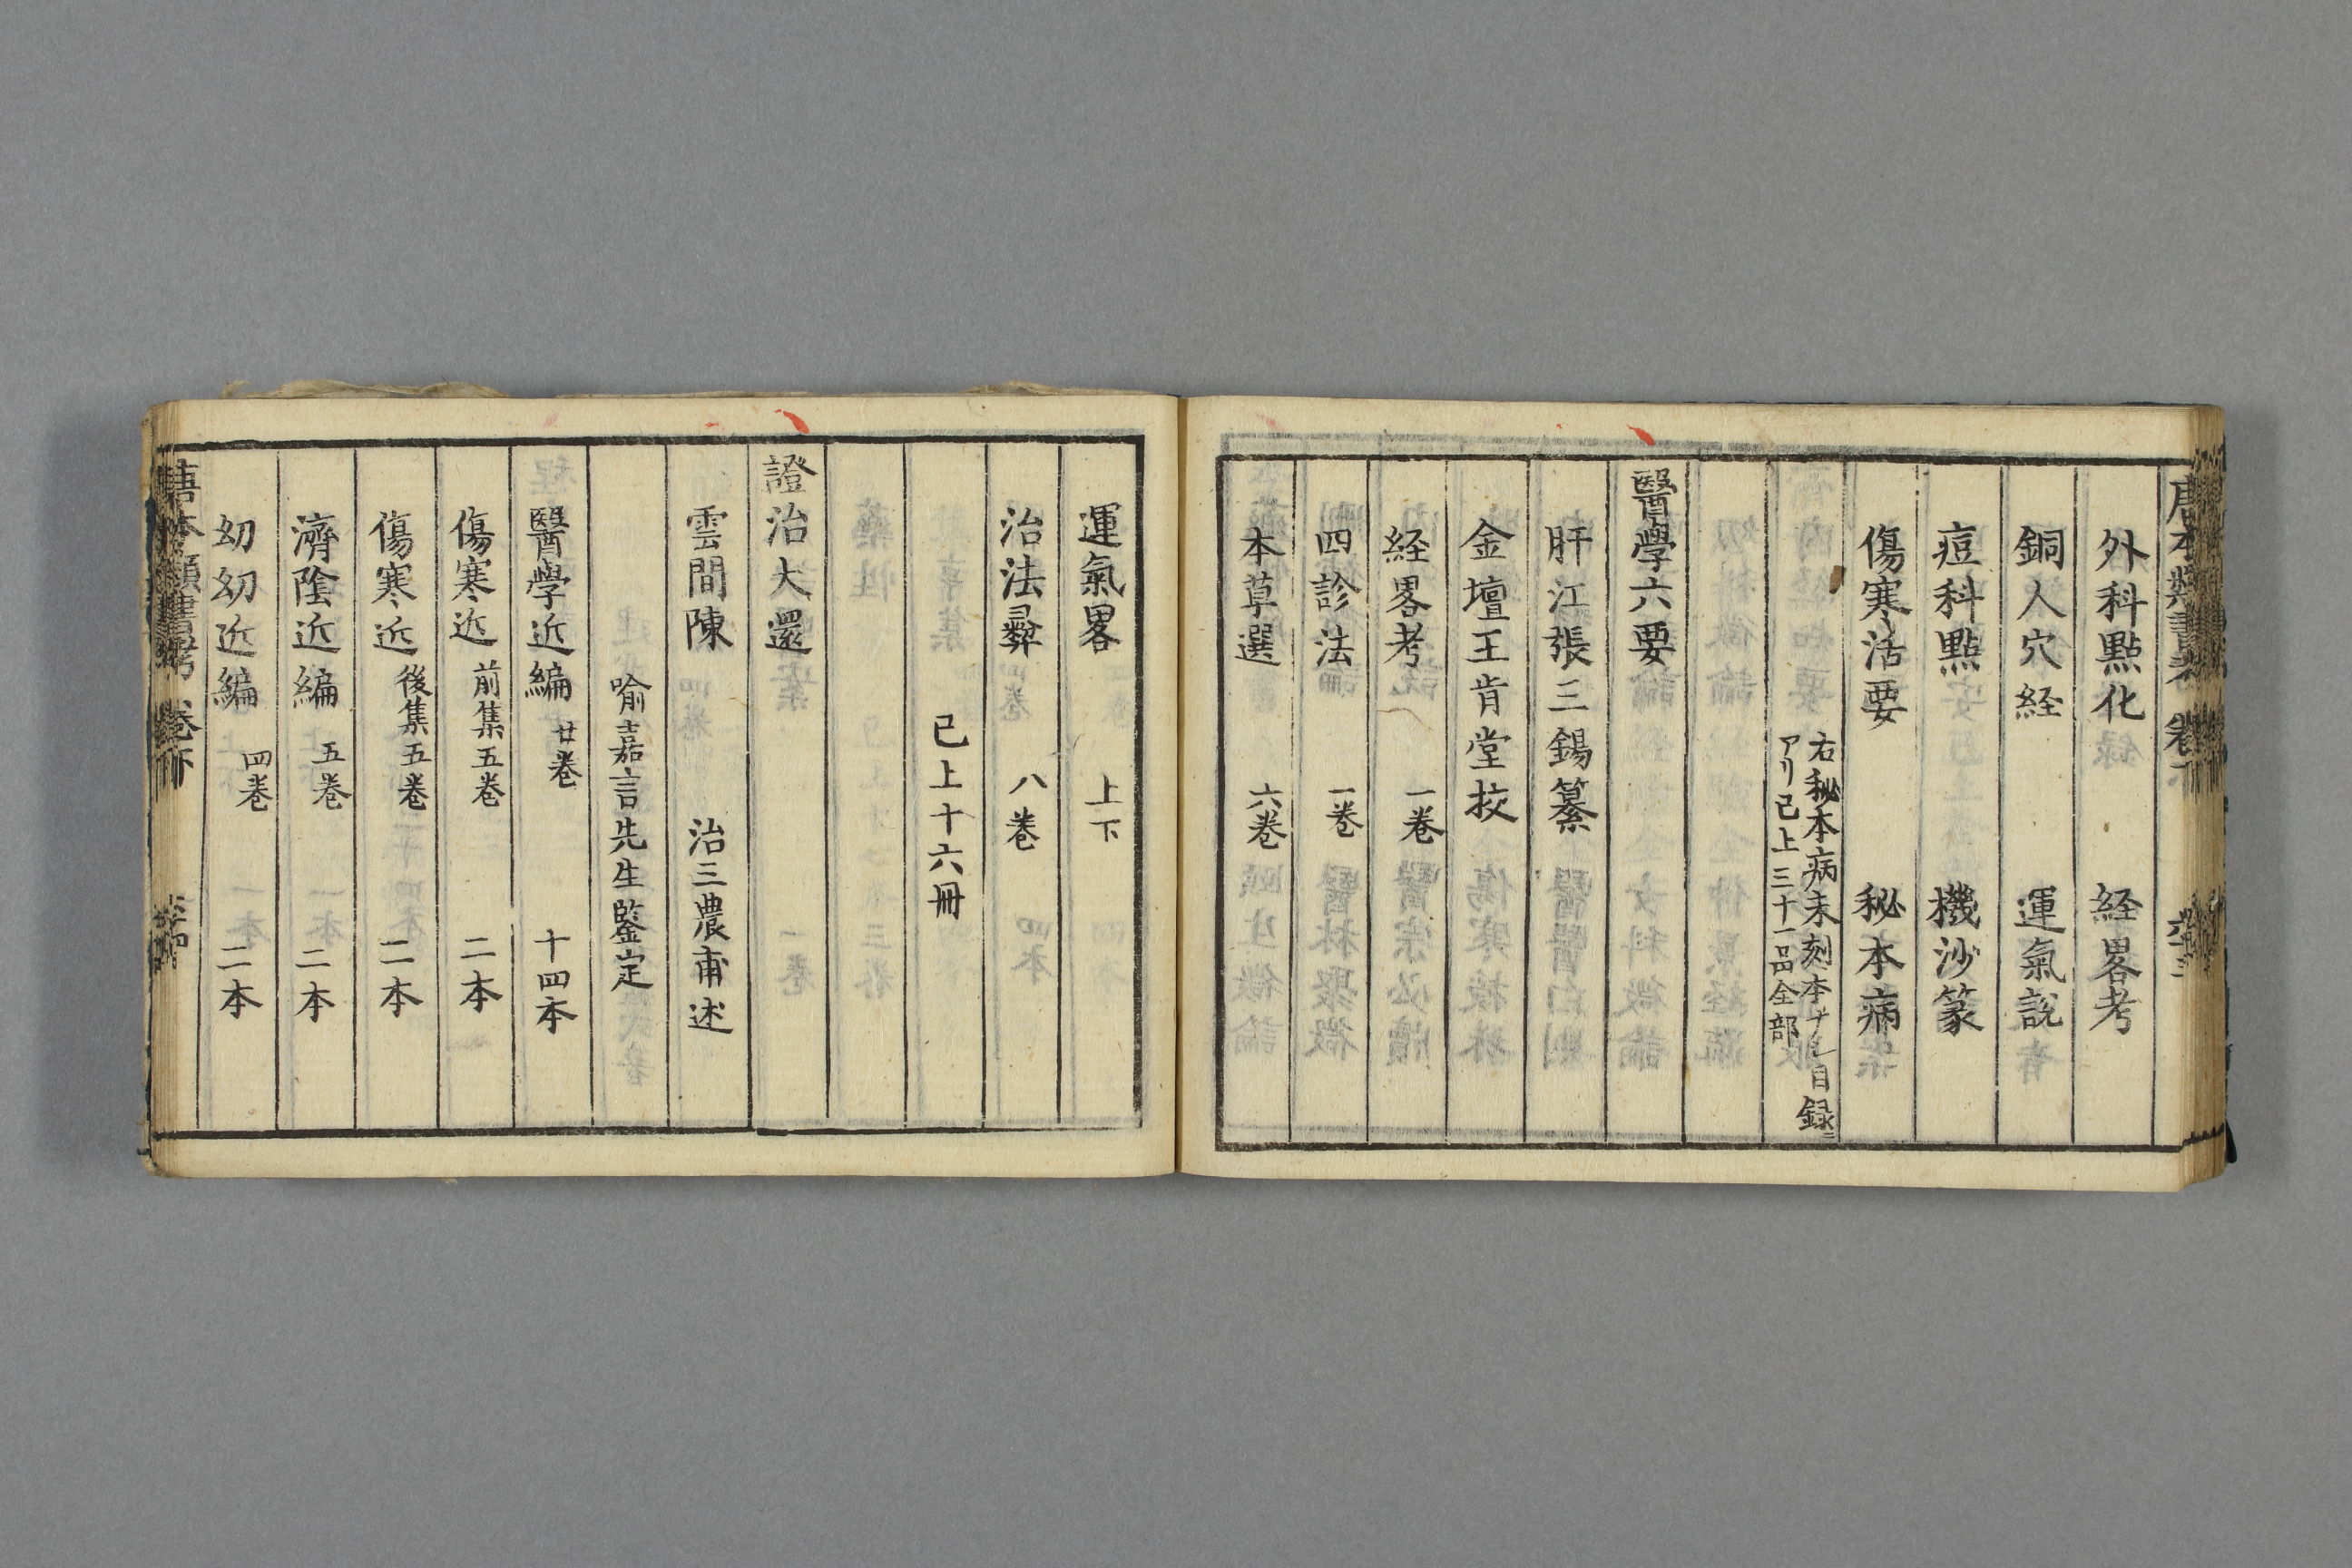 外科點化　経畧考
銅人穴経　運氣説
痘科點　機沙篆
傷寒活要　秘本病
右秘本病未刻本ナシ目録ニ
アリ已上三十一品全部
醫學六要
肝江張三錫纂
金壇王肯堂挍
経畧考　一巻
四診法　一巻
本草選　六巻
運氣畧　上下
治法彙　八巻
已上十六冊
證治大還
雲間陳　治三農甫述
喻嘉言先生鑒定
醫學近編　廿巻　十四本
傷寒近　前集五巻　二本
傷寒近　後集五巻　二本
濟陰近編　五巻　二本
幼幼近編　四巻　二本